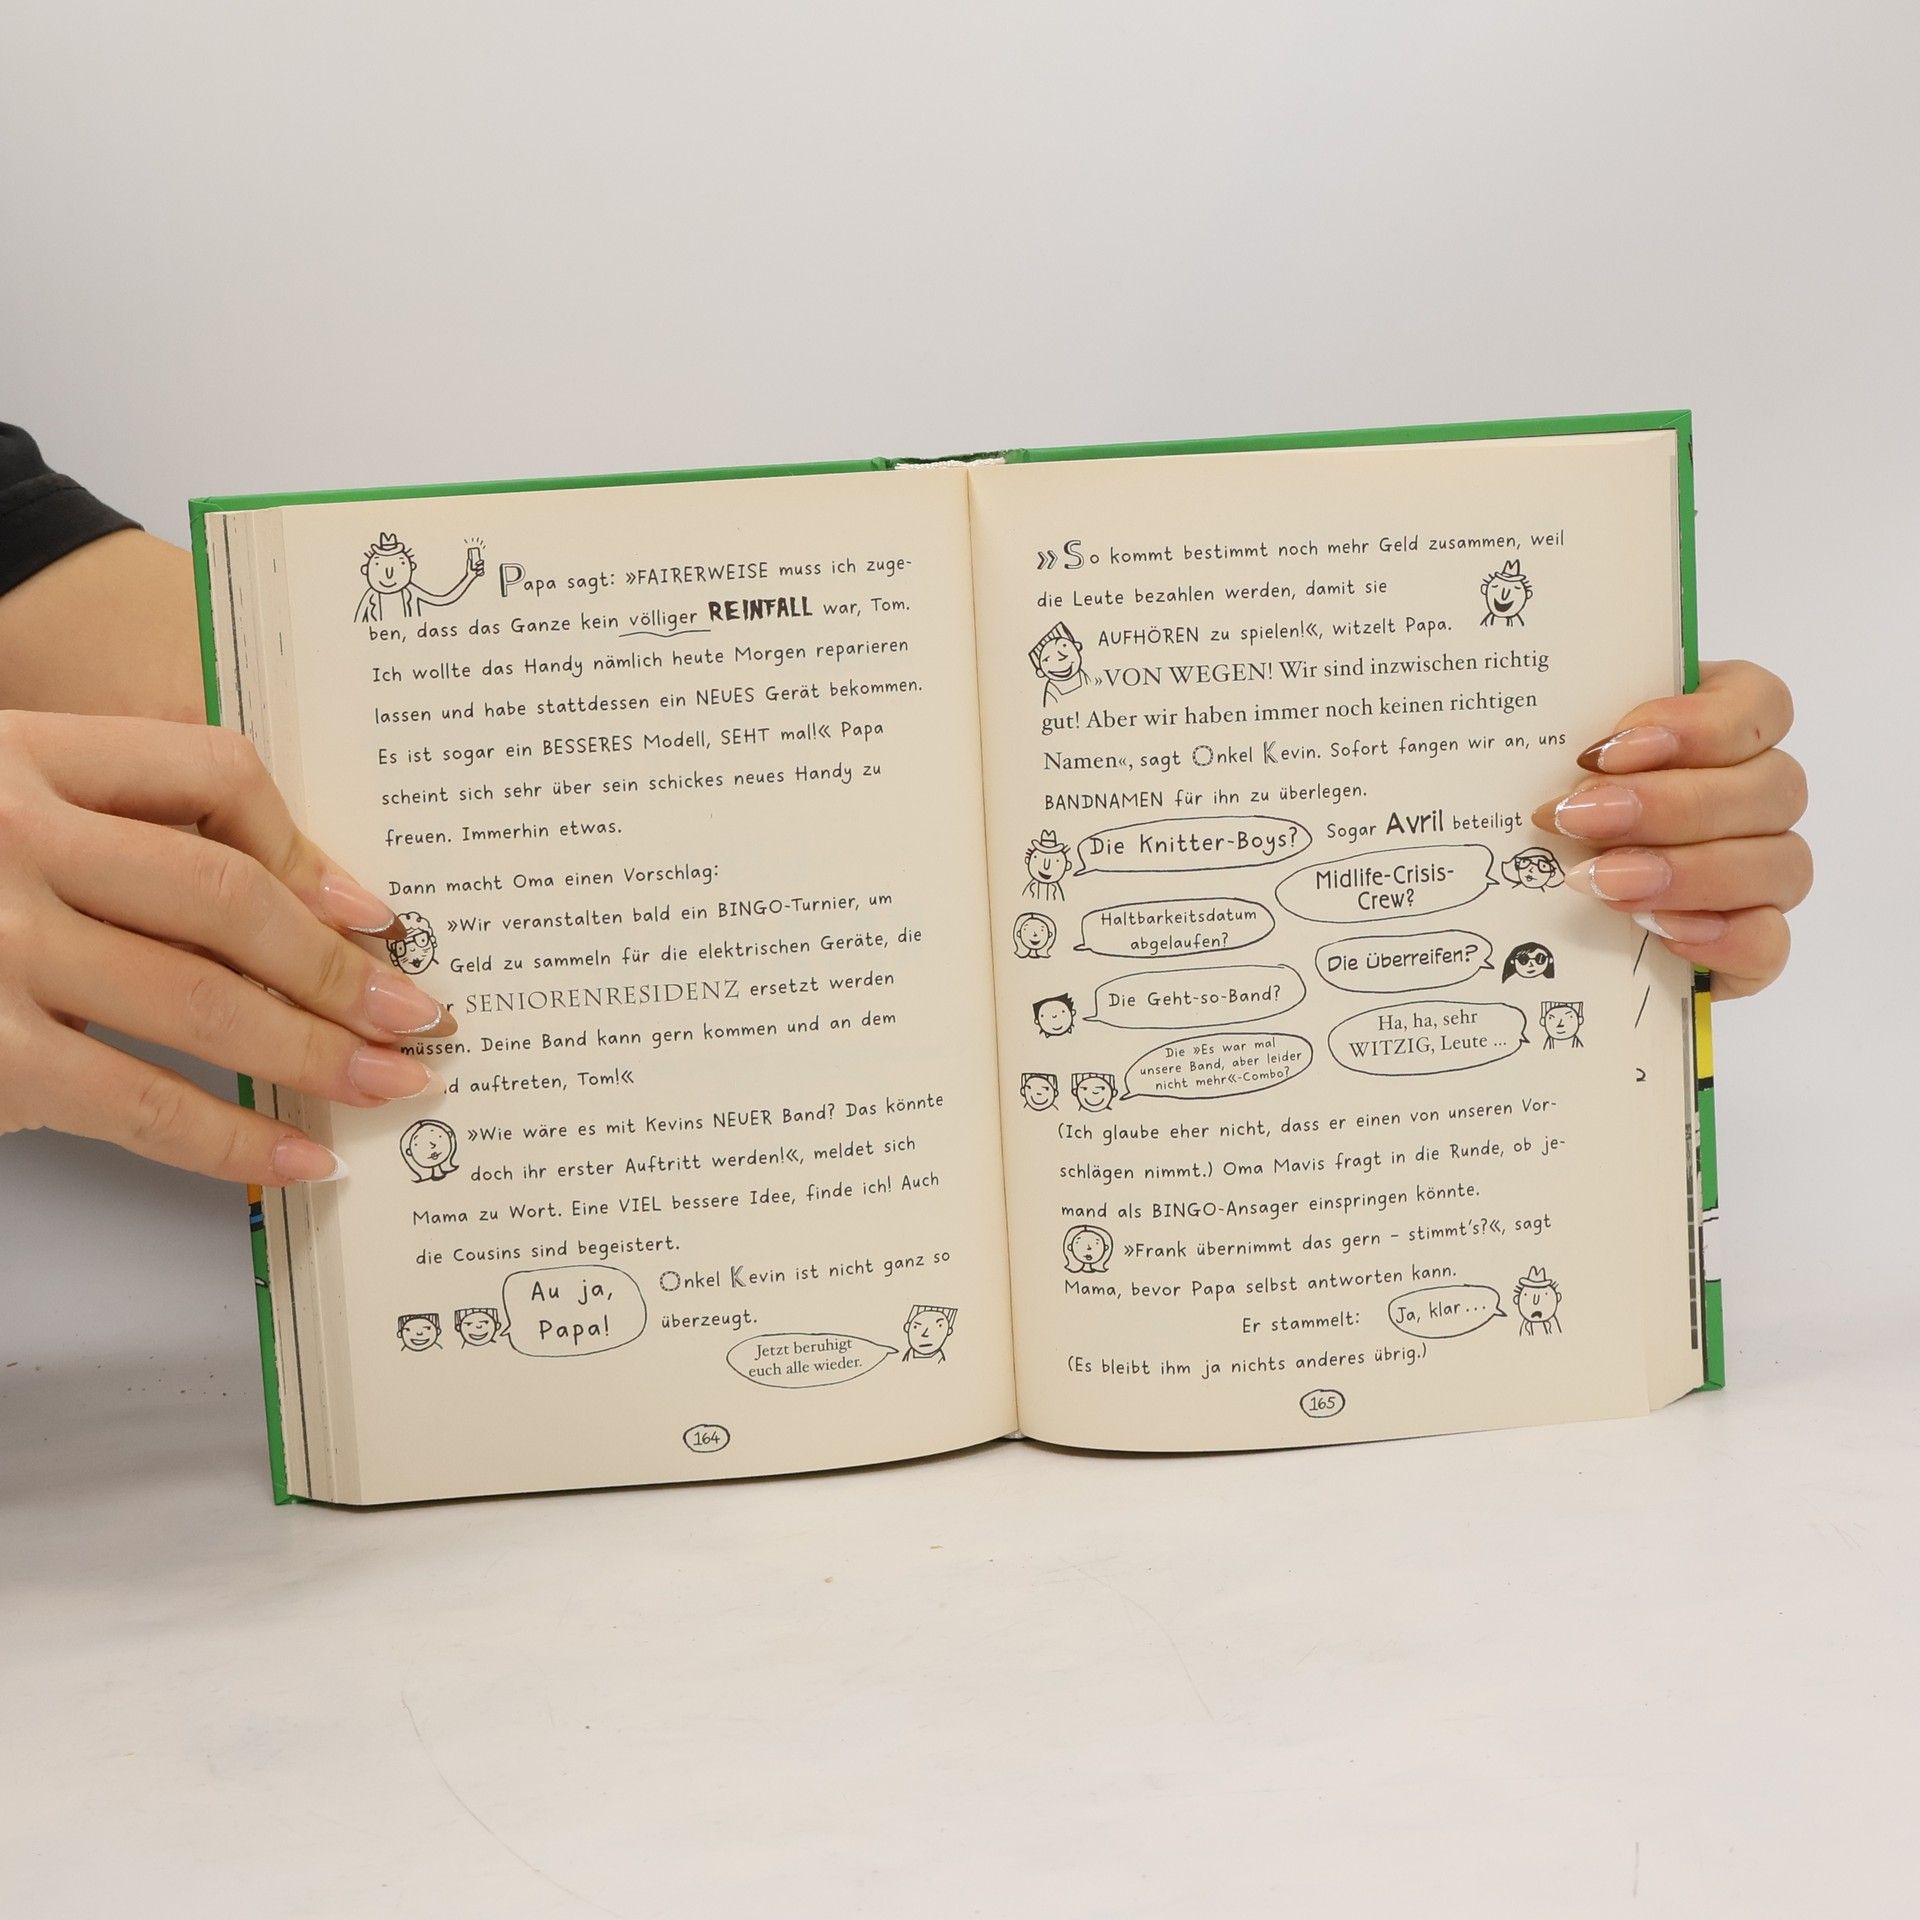 Papa sagt: »FAIRERWEISE muss ich zuge-
ben, dass das Ganze kein völliger REINFALL war, Tom.
Ich wollte das Handy nämlich heute Morgen reparieren
lassen und habe stattdessen ein NEUES Gerät bekommen.
Es ist sogar ein BESSERES Modell, SEHT mal!« Papa
scheint sich sehr über sein schickes neues Handy zu
freuen. Immerhin etwas.
Dann macht Oma einen Vorschlag:
»Wir veranstalten bald ein BINGO-Turnier, um
Geld zu sammeln für die elektrischen Geräte, die
SENIORENRESIDENZ ersetzt werden
müssen. Deine Band kann gern kommen und an dem
auftreten, Tom!«
»Wie wäre es mit Kevins NEUER Band? Das könnte
doch ihr erster Auftritt werden!«, meldet sich
Mama zu Wort. Eine VIEL bessere Idee, finde ich! Auch
die Cousins sind begeistert.
Au ja,
Papa!
Onkel Kevin ist nicht ganz so
überzeugt.
Jetzt beruhigt
euch alle wieder.
164
»So kommt bestimmt noch mehr Geld zusammen, weil
die Leute bezahlen werden, damit sie
AUFHÖREN zu spielen!«, witzelt Papa.
»VON WEGEN! Wir sind inzwischen richtig
gut! Aber wir haben immer noch keinen richtigen
Namen«, sagt Onkel Kevin. Sofort fangen wir an, uns
BANDNAMEN für ihn zu überlegen.
Die Knitter-Boys?
Sogar Avril beteiligt
Midlife-Crisis-
Crew?
Haltbarkeitsdatum
abgelaufen?
Die Überreifen?
Die Geht-so-Band?
Ha, ha, sehr
WITZIG, Leute ...
Die »Es war mal
unsere Band, aber leider
nicht mehr«-Combo?
(Ich glaube eher nicht, dass er einen von unseren Vor-
schlägen nimmt.) Oma Mavis fragt in die Runde, ob je-
mand als BINGO-Ansager einspringen könnte.
»Frank übernimmt das gern – stimmt's?«, sagt
Mama, bevor Papa selbst antworten kann.
Er stammelt:
Ja, klar ...
(Es bleibt ihm ja nichts anderes übrig.)
165